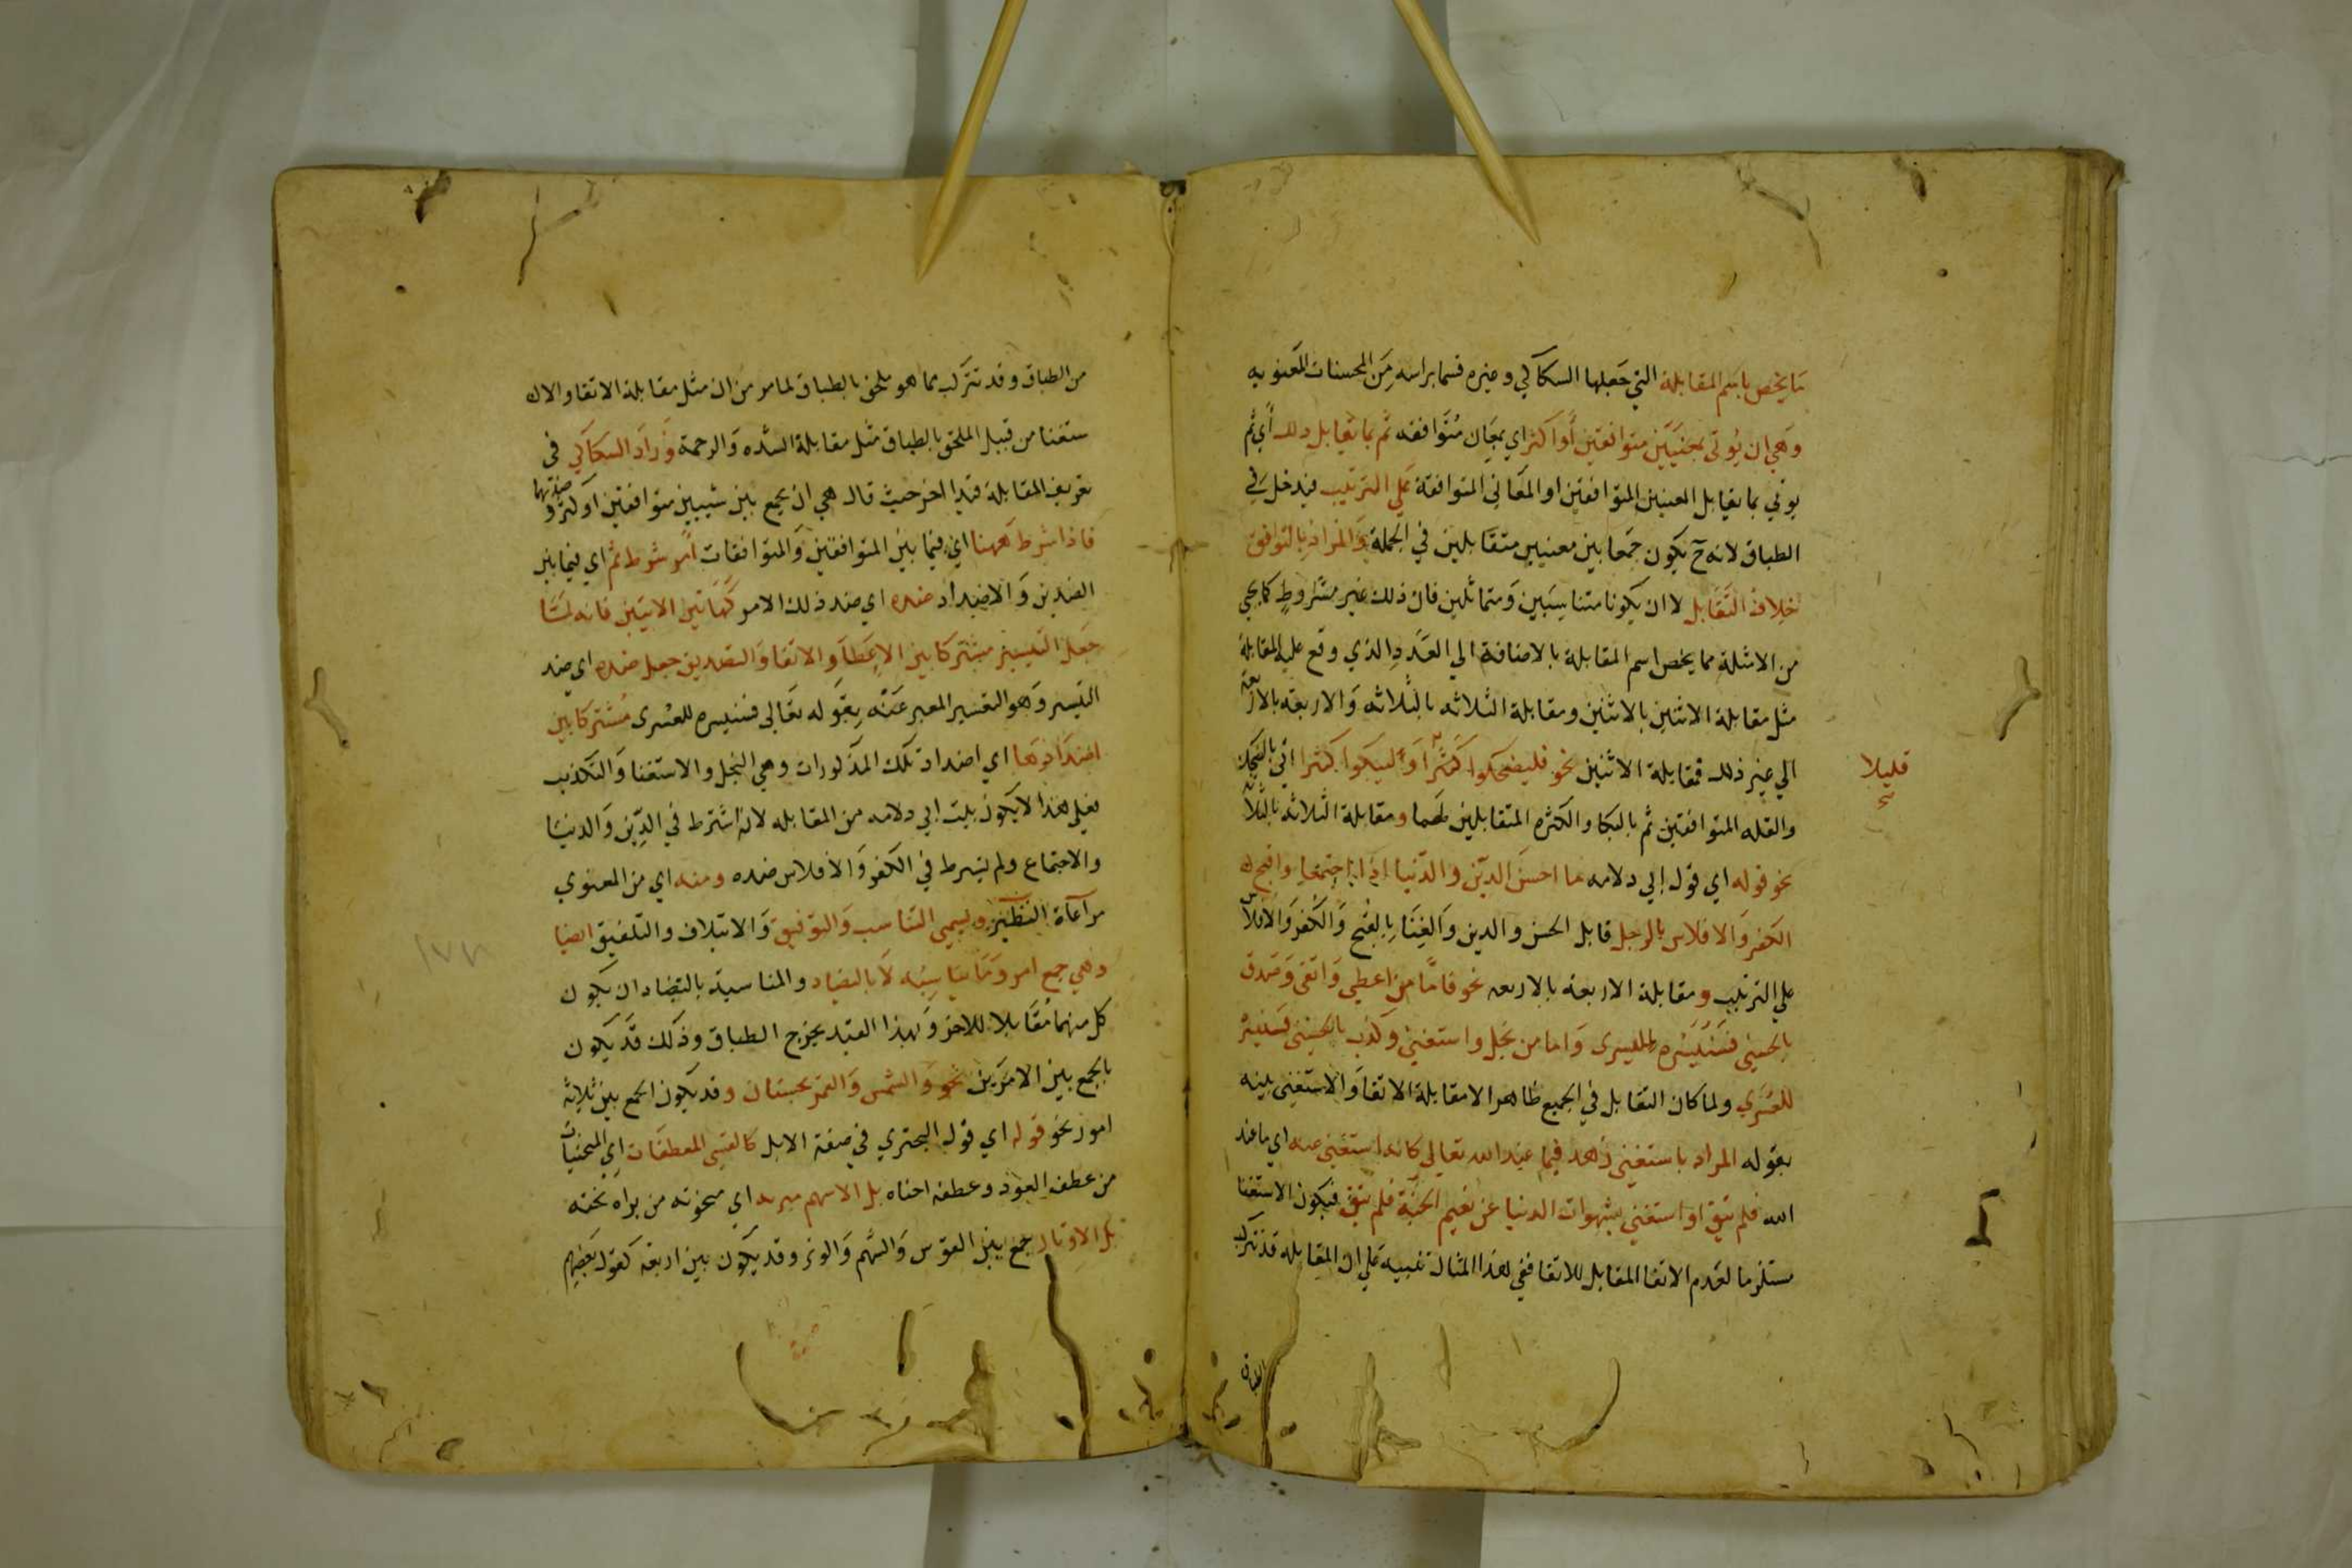 ما يخص باسم المقابلة التي جعلها السكاكي وغيره قسما براسه من المحسنات المعنويه
وهي ان يوتى بمعنيين متوافقين أو اكثر اي بمعان متوافقه ثم بما يقابل ذلك أي ثم
يوتي بما يقابل المعنيين المتوافقين او المعاني المتوافقة علي الترتيب فيدخل في
الطباق لانه ح يكون جمعا بين معنيين متقابلين في الجملة والمراد بالتوافق
خلاف التقابل لا ان يكونا متناسبين ومتماثلين فان ذلك غير مشروط كما يجي
من الامثلة مما يخص اسم المقابلة بالاضافة الي العدد الذي وقع عليه المقابلة
مثل مقابلة الاثنين بالاثنين ومقابلة الثلاثه بالثلاثه والاربعه بالاربعة
الي غير ذلك فمقابلة الاثنين نحو فليضحكوا كثيرا وليبكوا كثيرا اتي بالضحك
قليلا
والقله المتوافقين ثم بالبكا والكثره المتقابلين لهما ومقابلة الثلاثه بالثلاثة
نحو قوله اي قول ابي دلامه ما احسن الدين والدنيا اذا اجتمعا واقبح
الكفر والافلاس بالرجل قابل الحسن والدين والغنا بالقبح والكفر والافلاس
علي الترتيب ومقابلة الاربعة بالاربعه نحو فاما من اعطي واتقى وصدق
بالحسني فسنيسره لليسرى واما من بخل واستغني وكذب بالحسنى فسنيسره
للعسري ولما كان التقابل في الجميع ظاهرا الا مقابلة الاتقا والاستغني بينه
بقوله المراد باستغني زهد فيما عند الله تعالي كانه استغني عنه اي ما عند
الله فلم يتق او استغني بشهوات الدنيا عن نعيم الجنة فلم يتق فيكون الاستغنا
مستلزما لعدم الاتقا المقابل للاتقا ففي هذا المثال تنبيه علي ان المقابله قد تتركب
الطباق
من الطباق وقد تتركب مما هو ملحق بالطباق لما مر من ان مثل مقابلة الاتقا والا
ستغنا من قبيل الملحق بالطباق مثل مقابلة الشده والرحمة وزاد السكاكي في
تعريف المقابلة قيدا اخر حيث قال هي ان يجمع بين شيئين متوافقين او اكثر وضديهما
فاذا شرط ههنا اي فيما بين المتوافقين والمتوافقات امر شرط ثم اي فيما بين
الضدين والاضداد ضده اي ضد ذلك الامر كهاتين الايتين فانه لما
جعل التيسير مشتركا بين الاعطا والاتقا والتصديق جعل ضده اي ضد
التيسر وهو التعسير المعبر عنه بقوله تعالي فسنيسره للعسرى مشتركا بين
اضدادها اي اضداد تلك المذكورات وهي البخل والاستغنا والتكذيب
فعلي هذا لا يكون بيت ابي دلامه من المقابله لانه اشترط في الدين والدنيا
والاجتماع ولم يشرط في الكفر والافلاس ضده ومنه اي من المعنوي
مراعاة النظير ويسمي التناسب والتوفيق والايتلاف والتلفيق ايضا
وهي جمع امر وما يناسبه لا بالتضاد والمناسبة بالتضاد ان يكون
كل منهما مقابلا للاخر وبهذا القيد يخرج الطباق وذلك قد يكون
بالجمع بين الامرين نحو والشمس والقمر بحسبان وقد يكون الجمع بين ثلاثة
امور نحو قوله اي قول البحتري في صفة الابل كالقسي المعطفات اي المنحنيات
من عطف العود وعطفه احناه بل الاسهم مبريه اي منحوته من براه نحته
بل الاوتار جمع بين القوس والسهم والوتر وقد يكون بين اربعة كقول بعضهم
١٧٨